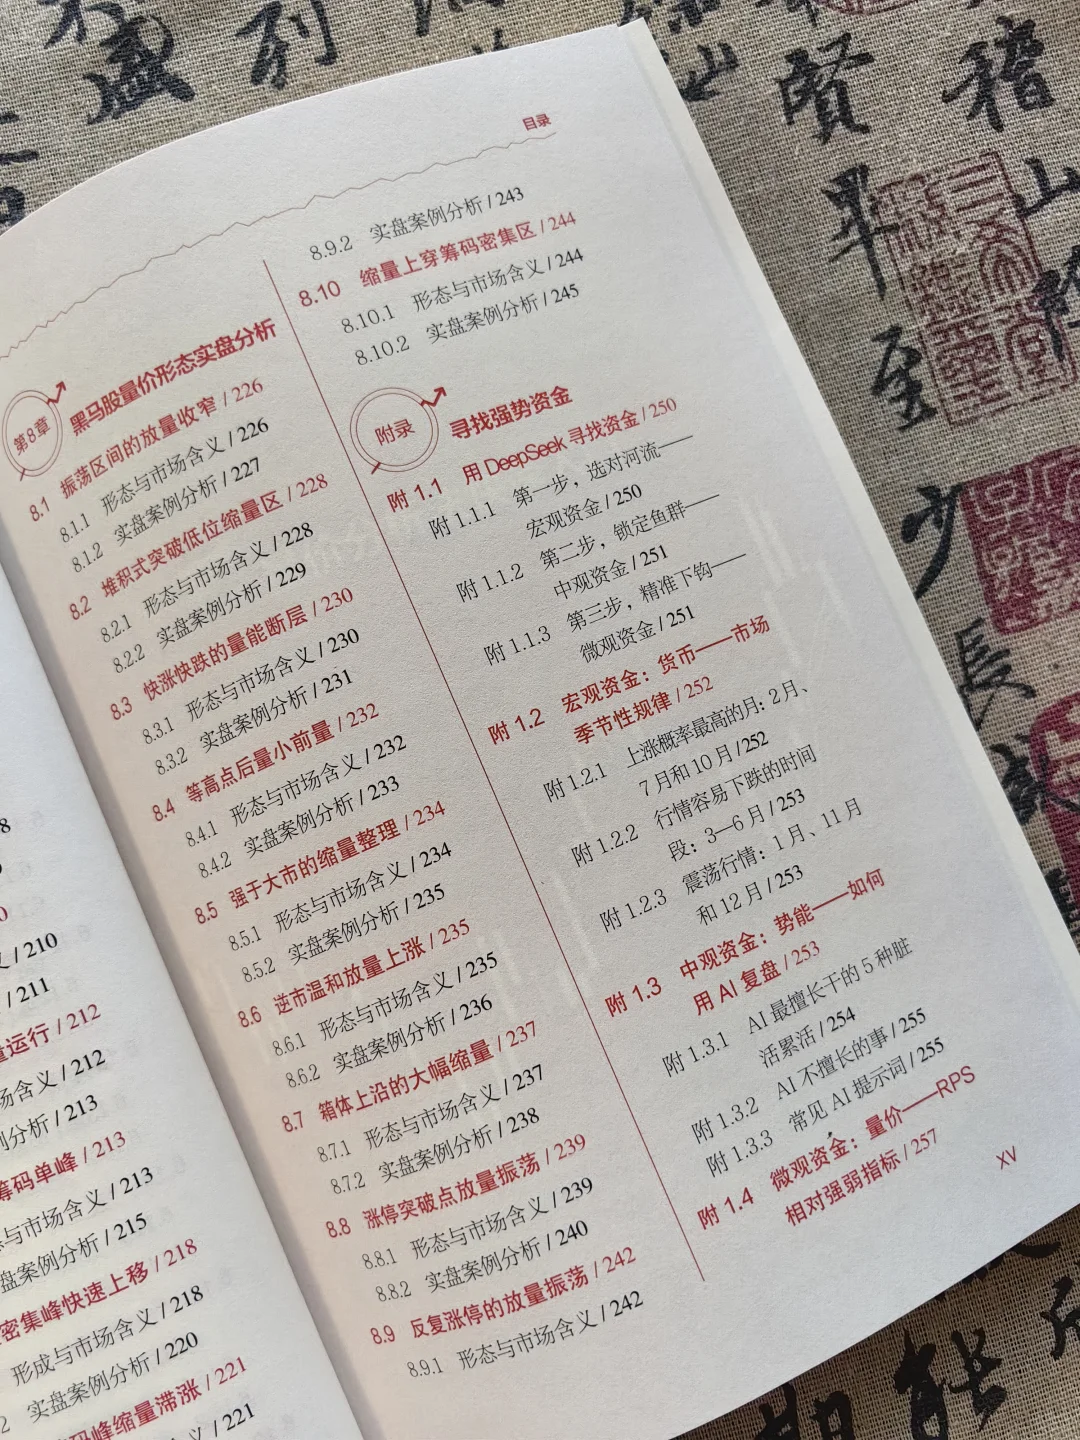 目录
第8章
黑马股量价形态实盘分析
8.1 振荡区间的放量收窄 / 226
8.1.1 形态与市场含义 / 226
8.1.2 实盘案例分析 / 227
8.2 堆积式突破低位缩量区 / 228
8.2.1 形态与市场含义 / 228
8.2.2 实盘案例分析 / 229
8.3 快涨快跌的量能断层 / 230
8.3.1 形态与市场含义 / 230
8.3.2 实盘案例分析 / 231
8.4 等高点后量小前量 / 232
8.4.1 形态与市场含义 / 232
8.4.2 实盘案例分析 / 233
8.5 强于大市的缩量整理 / 234
8.5.1 形态与市场含义 / 234
8.5.2 实盘案例分析 / 235
8.6 逆市温和放量上涨 / 235
8.6.1 形态与市场含义 / 235
8.6.2 实盘案例分析 / 236
8.7 箱体上沿的大幅缩量 / 237
8.7.1 形态与市场含义 / 237
8.7.2 实盘案例分析 / 238
8.8 涨停突破点放量振荡 / 239
8.8.1 形态与市场含义 / 239
8.8.2 实盘案例分析 / 240
8.9 反复涨停的放量振荡 / 242
8.9.1 形态与市场含义 / 242
8.9.2 实盘案例分析 / 243
8.10 缩量上穿筹码密集区 / 244
8.10.1 形态与市场含义 / 244
8.10.2 实盘案例分析 / 245
附录
寻找强势资金
附 1.1 用 DeepSeek 寻找资金 / 250
附 1.1.1 第一步，选对河流——
宏观资金 / 250
附 1.1.2 第二步，锁定鱼群——
中观资金 / 251
附 1.1.3 第三步，精准下钩——
微观资金 / 251
附 1.2 宏观资金：货币——市场
季节性规律 / 252
附 1.2.1 上涨概率最高的月：2月、
7月和10月 / 252
附 1.2.2 行情容易下跌的时间
段：3—6月 / 253
附 1.2.3 震荡行情：1月、11月
和12月 / 253
附 1.3 中观资金：势能——如何
用 AI 复盘 / 253
附 1.3.1 AI 最擅长干的 5 种脏
活累活 / 254
附 1.3.2 AI 不擅长的事 / 255
附 1.3.3 常见 AI 提示词 / 255
附 1.4 微观资金：量价——RPS
相对强弱指标 / 257
XV
210
/ 211
量运行 / 212
市场含义 / 212
例分析 / 213
筹码单峰 / 213
与市场含义 / 213
盘案例分析 / 215
密集峰快速上移 / 218
形成与市场含义 / 218
实盘案例分析 / 220
码峰缩量滞涨 / 221
/ 221